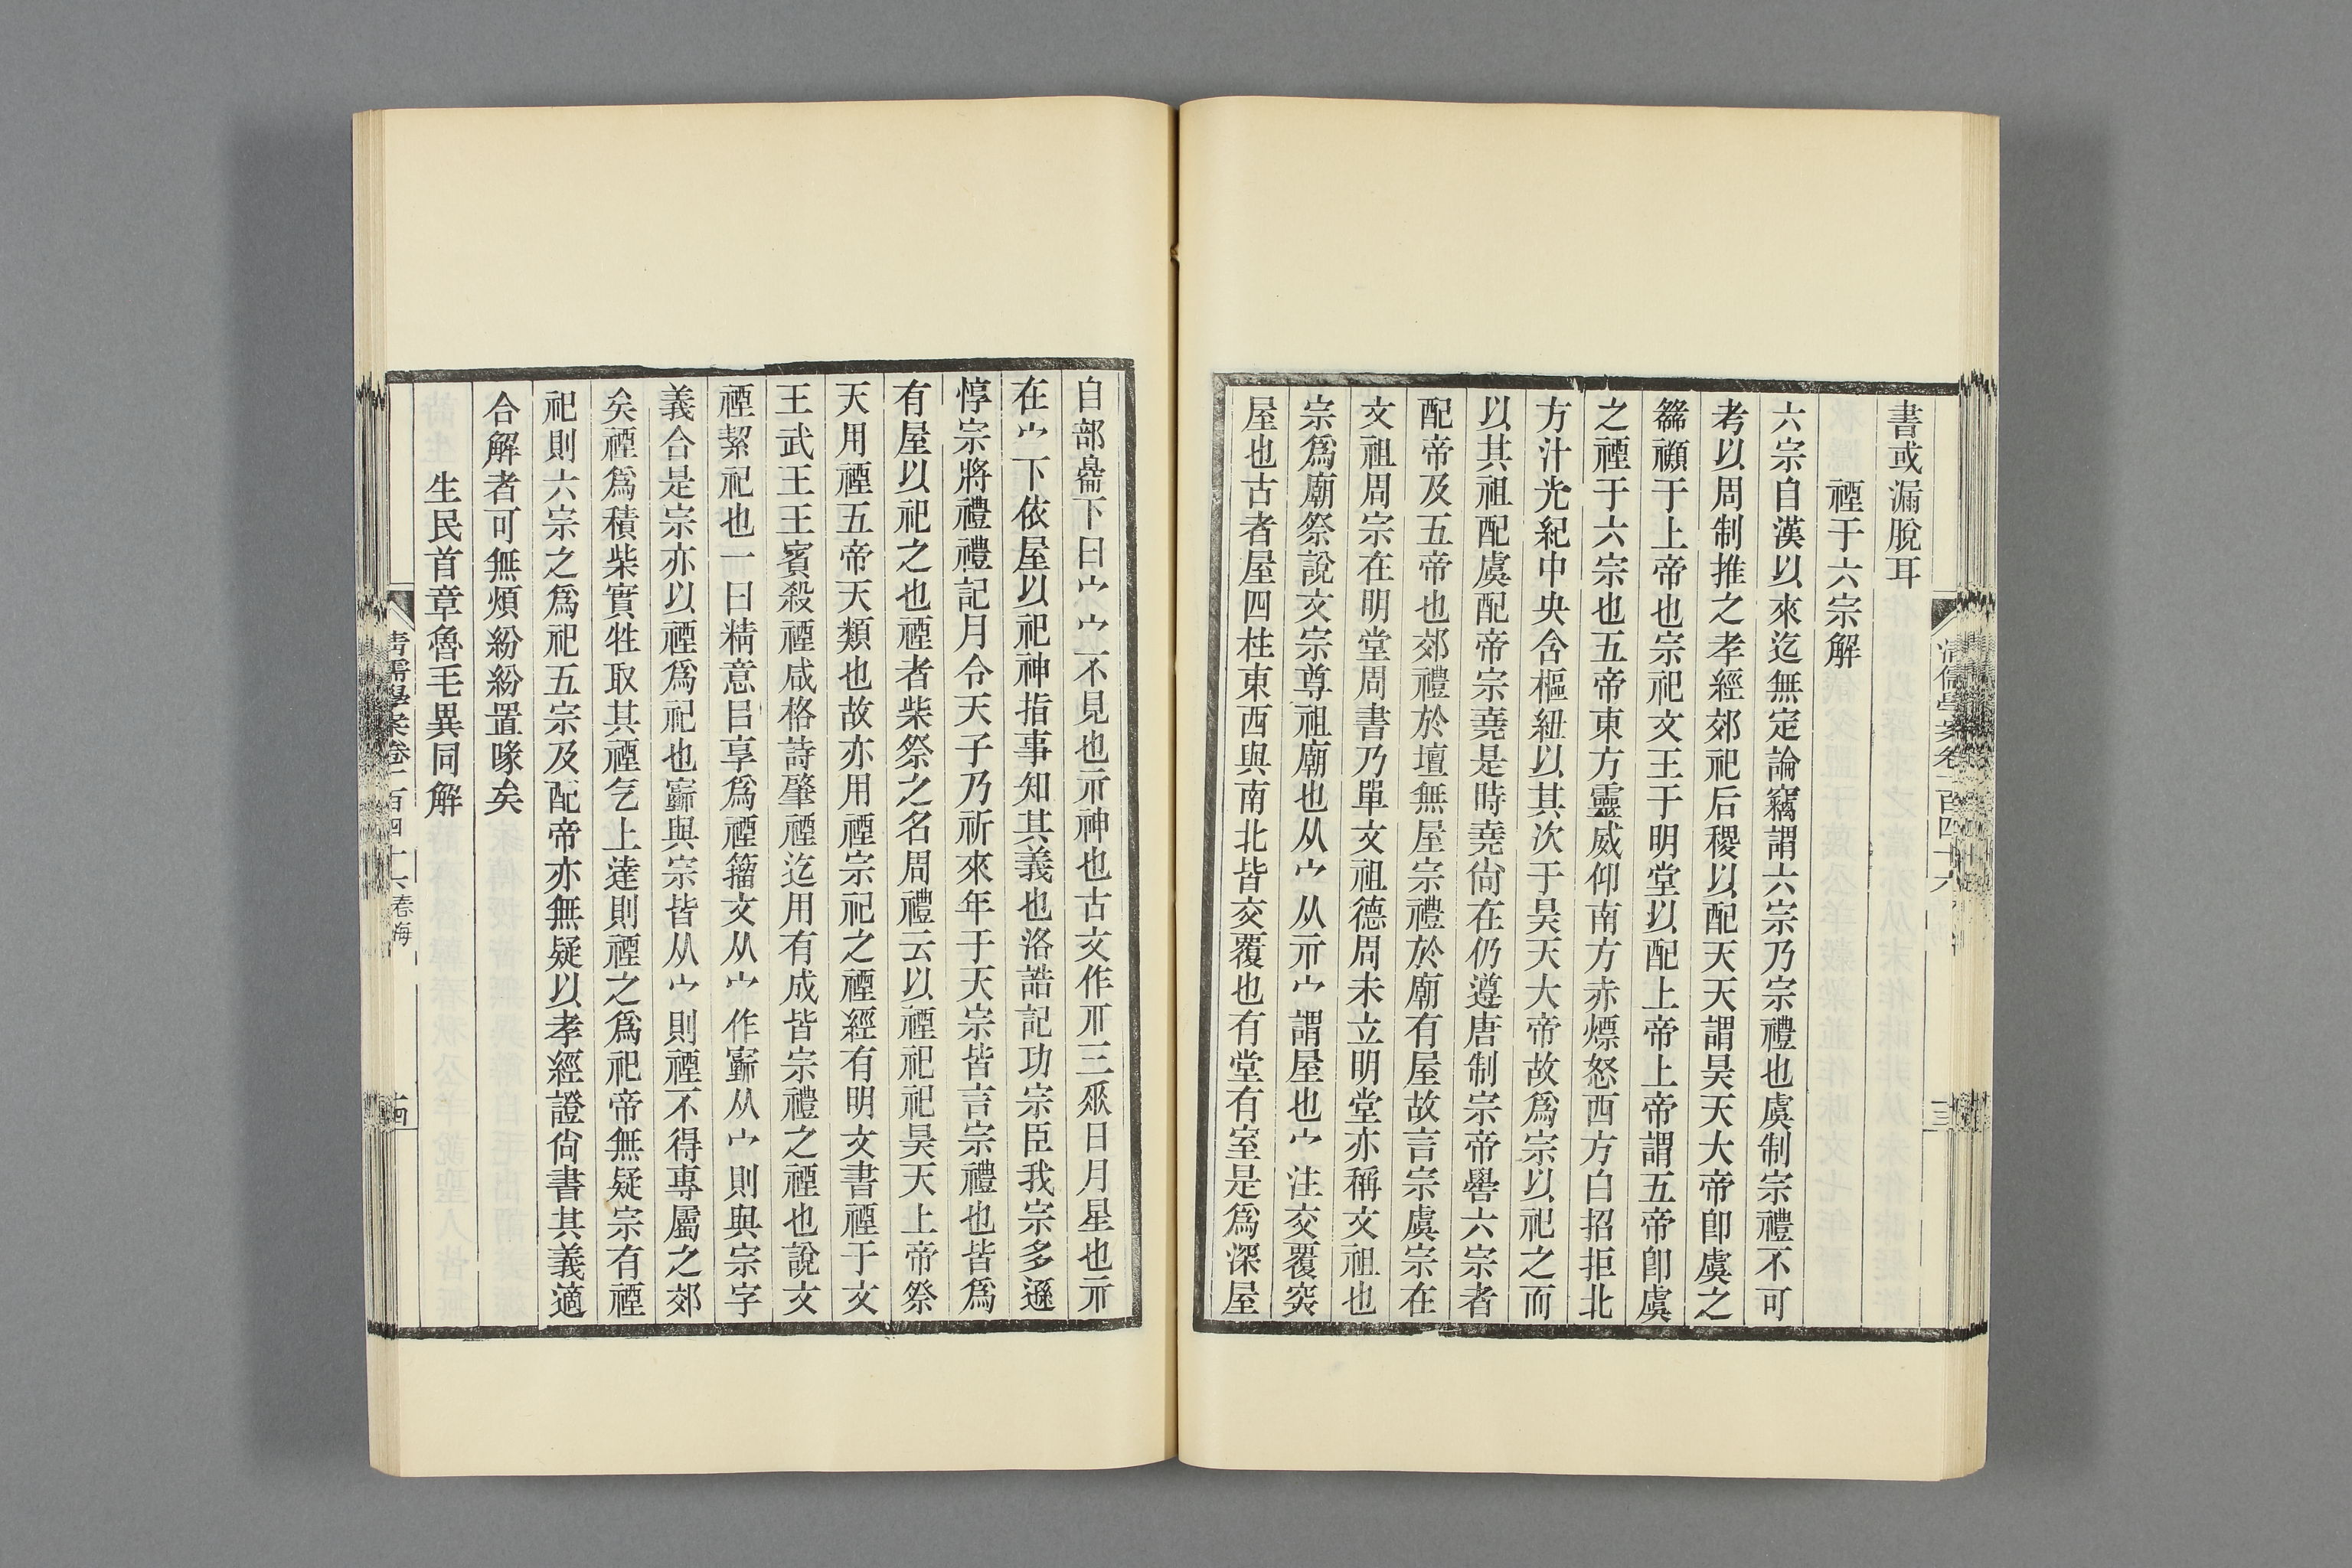 書或漏脫耳
禋于六宗解
六宗自漢以來迄無定論竊謂六宗乃宗禮也虞制宗禮不可
考以周制推之孝經郊祀后稷以配天天謂昊天大帝卽虞之
䉵禷于上帝也宗祀文王于明堂以配上帝上帝謂五帝卽虞
之禋于六宗也五帝東方靈威仰南方赤熛怒西方白招拒北
方汁光紀中央含樞紐以其次于昊天大帝故爲宗以祀之而
以其祖配虞配帝宗堯是時堯尙在仍遵唐制宗帝嚳六宗者
配帝及五帝也郊禮於壇無屋宗禮於廟有屋故言宗虞宗在
文祖周宗在明堂周書乃單文祖德周未立明堂亦稱文祖也
宗爲廟祭說文宗尊祖廟也从宀从示宀謂屋也宀注交覆突
屋也古者屋四柱東西與南北皆交覆也有堂有室是爲深屋
自部𦤝下曰宀宀不見也示神也古文作𠀁三𠂹日月星也示
在宀下依屋以祀神指事知其義也洛誥記功宗臣我宗多遜
惇宗將禮禮記月令天子乃祈來年于天宗皆言宗禮也皆爲
有屋以祀之也禋者柴祭之名周禮云以禋祀祀昊天上帝祭
天用禋五帝天類也故亦用禋宗祀之禋經有明文書禋于文
王武王王賓殺禋咸格詩肇禋迄用有成皆宗禮之禋也說文
禋絜祀也一曰精意㠯享爲禋籒文从宀作𥨻从宀則與宗字
義合是宗亦以禋爲祀也𥨻與宗皆从宀則禋不得專屬之郊
矣禋爲積柴實牲取其禋气上達則禋之爲祀帝無疑宗有禋
祀則六宗之爲祀五宗及配帝亦無疑以孝經證尙書其義適
合解者可無煩紛紛置喙矣
生民首章魯毛異同解
清儒學案卷一百四十六 春海 十四